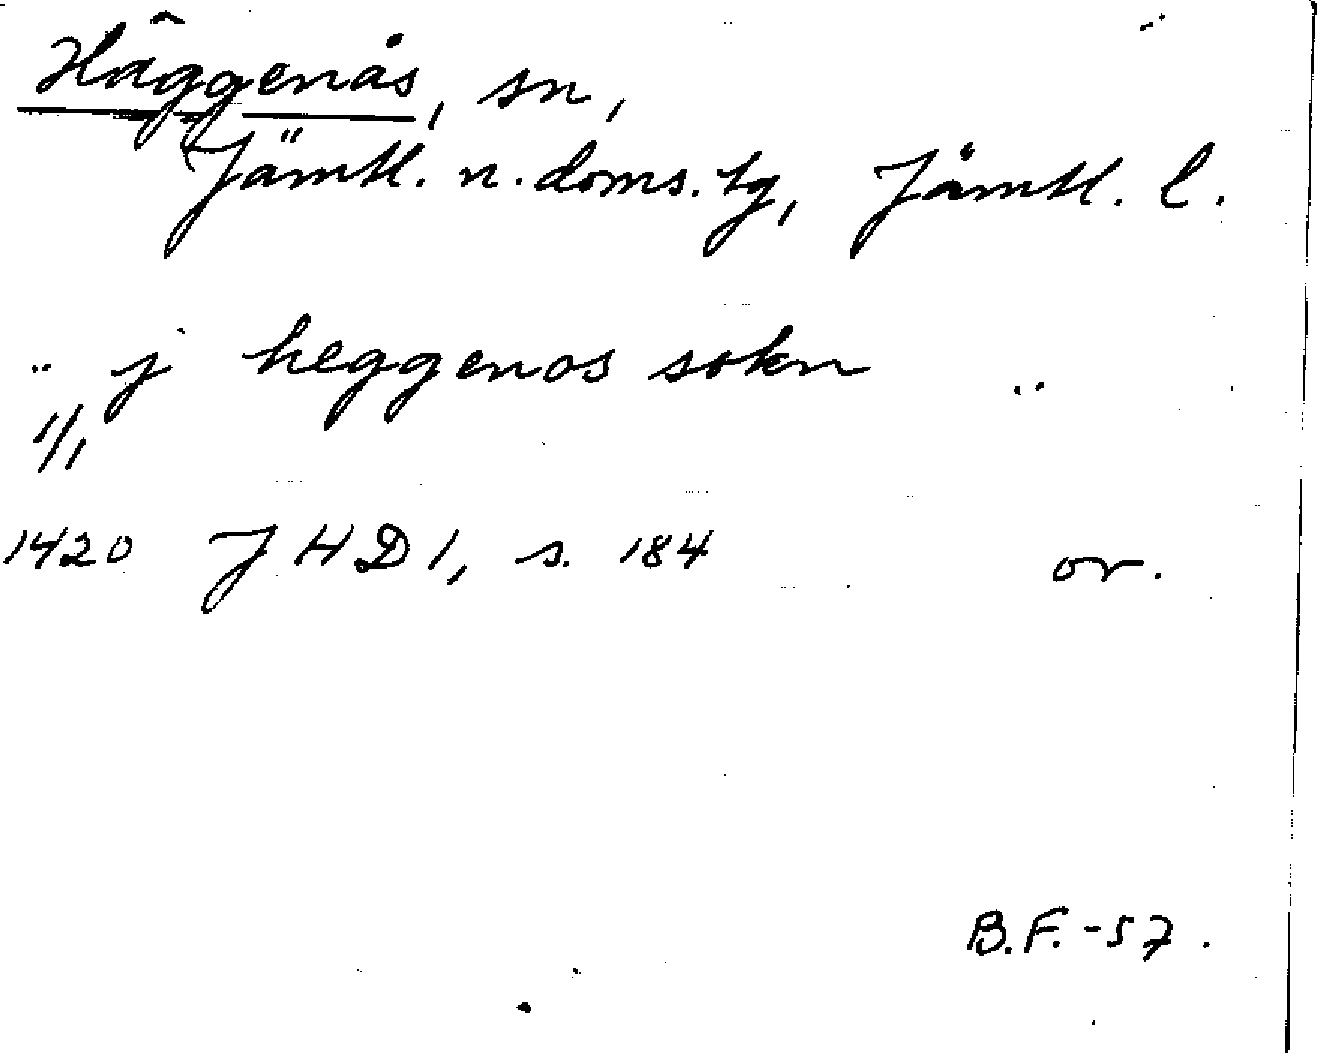 Häggenås, sn,
Jämtl. n. doms. tg, Jämtl. l.
" j heggenos sokn "
1/1
1420 JHD 1, s. 184 or.
B.F.-57.